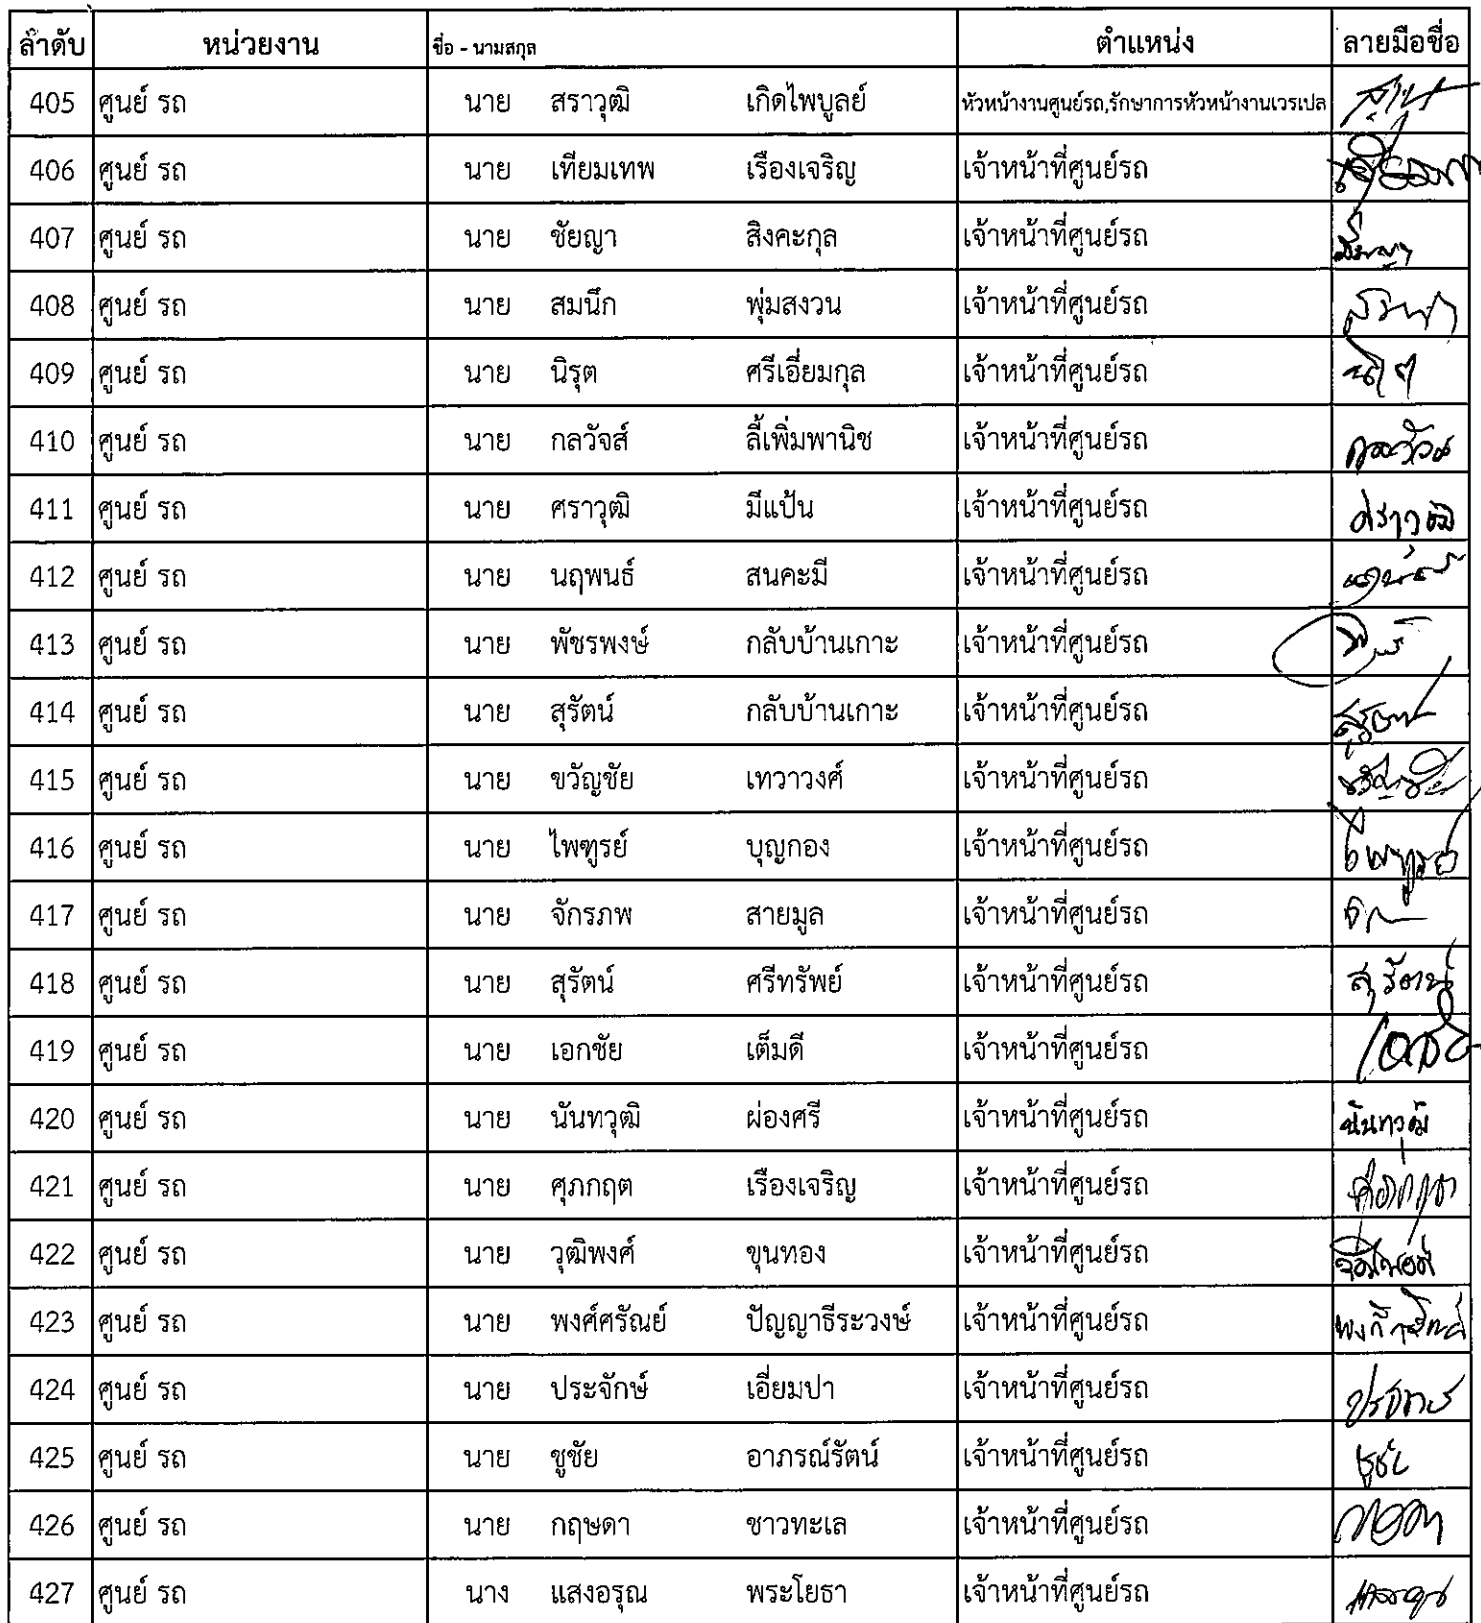 ลำดับ หน่วยงาน ชื่อ - นามสกุล ตำแหน่ง ลายมือชื่อ
405 ศูนย์ รถ นาย สราวุฒิ เกิดไพบูลย์ หัวหน้างานศูนย์รถ,รักษาการหัวหน้างานเวรเปล
406 ศูนย์ รถ นาย เทียมเทพ เรืองเจริญ เจ้าหน้าที่ศูนย์รถ
407 ศูนย์ รถ นาย ชัยญา สิงคะกุล เจ้าหน้าที่ศูนย์รถ
408 ศูนย์ รถ นาย สมนึก พุ่มสงวน เจ้าหน้าที่ศูนย์รถ
409 ศูนย์ รถ นาย นิรุต ศรีเอี่ยมกุล เจ้าหน้าที่ศูนย์รถ
410 ศูนย์ รถ นาย กลวัจส์ ลี้เพิ่มพานิช เจ้าหน้าที่ศูนย์รถ
411 ศูนย์ รถ นาย ศราวุฒิ มีแป้น เจ้าหน้าที่ศูนย์รถ ศราวุฒิ
412 ศูนย์ รถ นาย นฤพนธ์ สนคะมี เจ้าหน้าที่ศูนย์รถ
413 ศูนย์ รถ นาย พัชรพงษ์ กลับบ้านเกาะ เจ้าหน้าที่ศูนย์รถ
414 ศูนย์ รถ นาย สุรัตน์ กลับบ้านเกาะ เจ้าหน้าที่ศูนย์รถ
415 ศูนย์ รถ นาย ขวัญชัย เทวาวงศ์ เจ้าหน้าที่ศูนย์รถ
416 ศูนย์ รถ นาย ไพฑูรย์ บุญกอง เจ้าหน้าที่ศูนย์รถ ไพฑูรย์
417 ศูนย์ รถ นาย จักรภพ สายมูล เจ้าหน้าที่ศูนย์รถ
418 ศูนย์ รถ นาย สุรัตน์ ศรีทรัพย์ เจ้าหน้าที่ศูนย์รถ สุรัตน์
419 ศูนย์ รถ นาย เอกชัย เต็มดี เจ้าหน้าที่ศูนย์รถ เอกชัย
420 ศูนย์ รถ นาย นันทวุฒิ ผ่องศรี เจ้าหน้าที่ศูนย์รถ นันทวุฒิ
421 ศูนย์ รถ นาย ศุภกฤต เรืองเจริญ เจ้าหน้าที่ศูนย์รถ
422 ศูนย์ รถ นาย วุฒิพงศ์ ขุนทอง เจ้าหน้าที่ศูนย์รถ
423 ศูนย์ รถ นาย พงศ์ศรัณย์ ปัญญาธีระวงษ์ เจ้าหน้าที่ศูนย์รถ พงศ์ศรัณย์
424 ศูนย์ รถ นาย ประจักษ์ เอี่ยมปา เจ้าหน้าที่ศูนย์รถ
425 ศูนย์ รถ นาย ชูชัย อาภรณ์รัตน์ เจ้าหน้าที่ศูนย์รถ ชูชัย
426 ศูนย์ รถ นาย กฤษดา ชาวทะเล เจ้าหน้าที่ศูนย์รถ
427 ศูนย์ รถ นาง แสงอรุณ พระโยธา เจ้าหน้าที่ศูนย์รถ